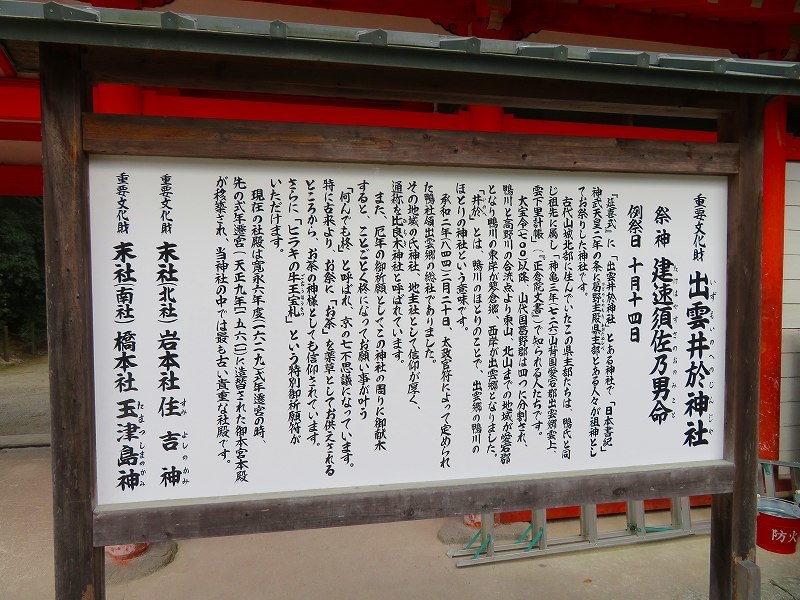 重要文化財 出雲井於神社
いずもいのへのじんじゃ
祭神 建速須佐乃男命
たけはやすさのおのみこと
例祭日 十月十四日
『延喜式』に「出雲井於神社」とある神社で『日本書紀』
神武天皇二年の条に葛野主殿県主部とある人々が祖神とし
てお祭りした神社です。
古代山城北部に住んでいたこの県主部たちは、鴨氏と同
じ祖先に属し「神亀三年(七二六)山背国愛宕郡出雲郷雲上、
雲下里計帳」(『正倉院文書』)で知られる人たちです。
大宝令(七〇〇)以降、山代国葛野郡は四つに分割され、
鴨川と高野川の合流点より東山、北山までの地域が愛宕郡
となり鴨川の東岸が蓼倉郷、西岸が出雲郷となりました。
「井於」とは、鴨川のほとりのことで、出雲郷の鴨川の
ほとりの神社という意味です。
承和二年(八四四)二月二十日、太政官符によって定められ
た鴨社領出雲郷の総社でありました。
その地域の氏神社、地主社として信仰が厚く、
通称を比良木神社と呼ばれています。
また、厄年の御祈願としてこの神社の周りに御献木
すると、ことごとく柊になってお願い事が叶う
「何んでも柊」と呼ばれ、京の七不思議になっています。
特に古来より、お祭に「お茶」を薬草としてお供えされる
ところから、お茶の神様としても信仰されています。
さらに「ヒラキの牛王宝札」という特別御祈願符が
いただけます。
現在の社殿は寛永六年度(一六二九)式年遷宮の時、
先の式年遷宮(天正九年(一五八一))に造替された御本宮本殿
が移築され、当神社の中では最も古い貴重な社殿です。
重要文化財 末社(北社) 岩本社 住吉神
すみよしのかみ
重要文化財 末社(南社) 橋本社 玉津島神
たまつしまのかみ
防火